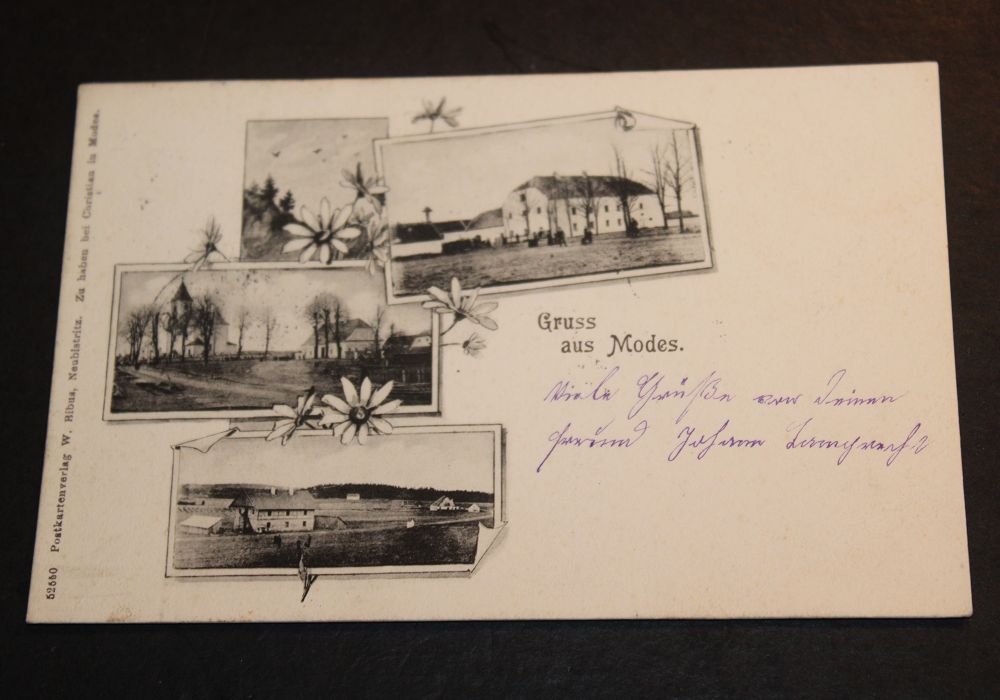 52550 Postkartenverlag W. Ribus, Neubistritz. Zu haben bei Christian in Modes.
Gruss
aus Modes.
Viele Grüße von Deinen
Freund Johann Lamprecht